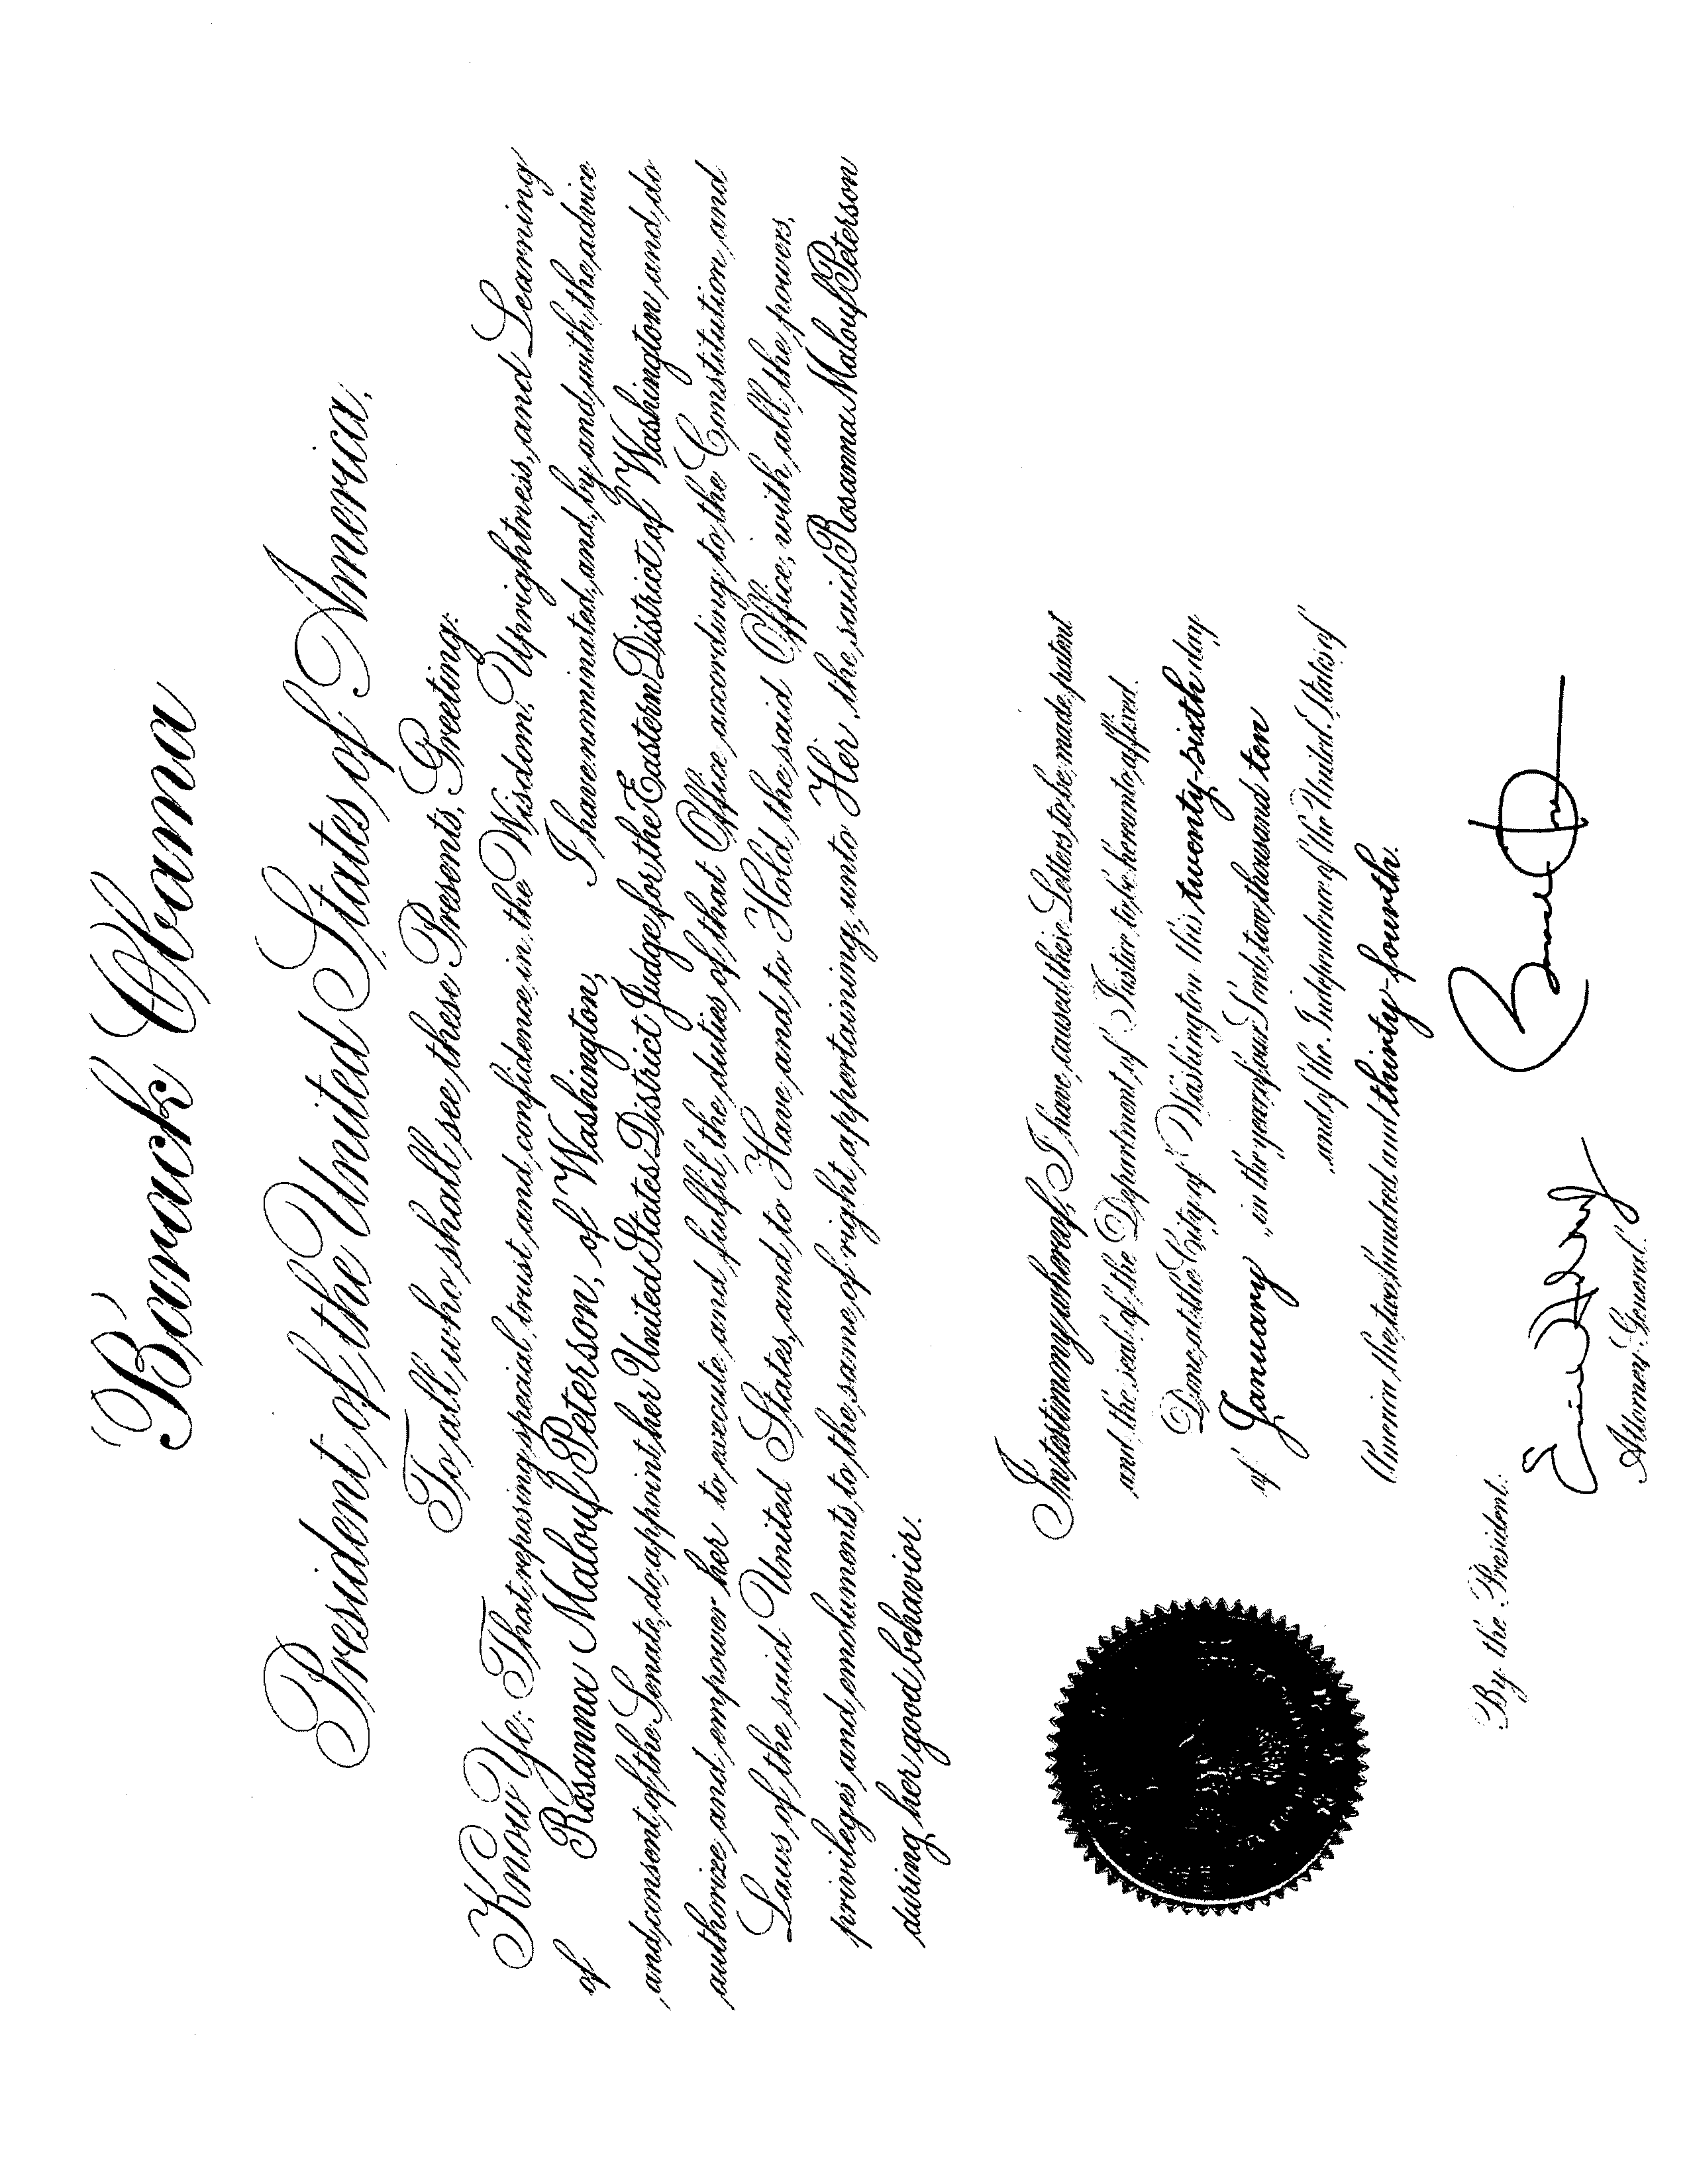 Barack Obama
President of the United States of America,
To all who shall see these Presents, Greeting:
Know Ye; That reposing special trust and confidence in the Wisdom, Uprightness, and Learning
of Rosanna Malouf Peterson, of Washington, I have nominated, and, by and with the advice
and consent of the Senate, do appoint her United States District Judge for the Eastern District of Washington and do
authorize and empower her to execute and fulfil the duties of that Office according to the Constitution and
Laws of the said United States, and to Have and to Hold the said Office, with all the powers,
privileges and emoluments to the same of right appertaining, unto Her, the said Rosanna Malouf Peterson
during her good behavior.
In testimony whereof, I have caused these Letters to be made patent
and the seal of the Department of Justice to be hereunto affixed.
Done at the City of Washington this twenty-sixth day
of January, in the year of our Lord two thousand ten
and of the Independence of the United States of
America the two hundred and thirty-fourth.
Barack Obama
By the President:
Eric Holder
Attorney General.